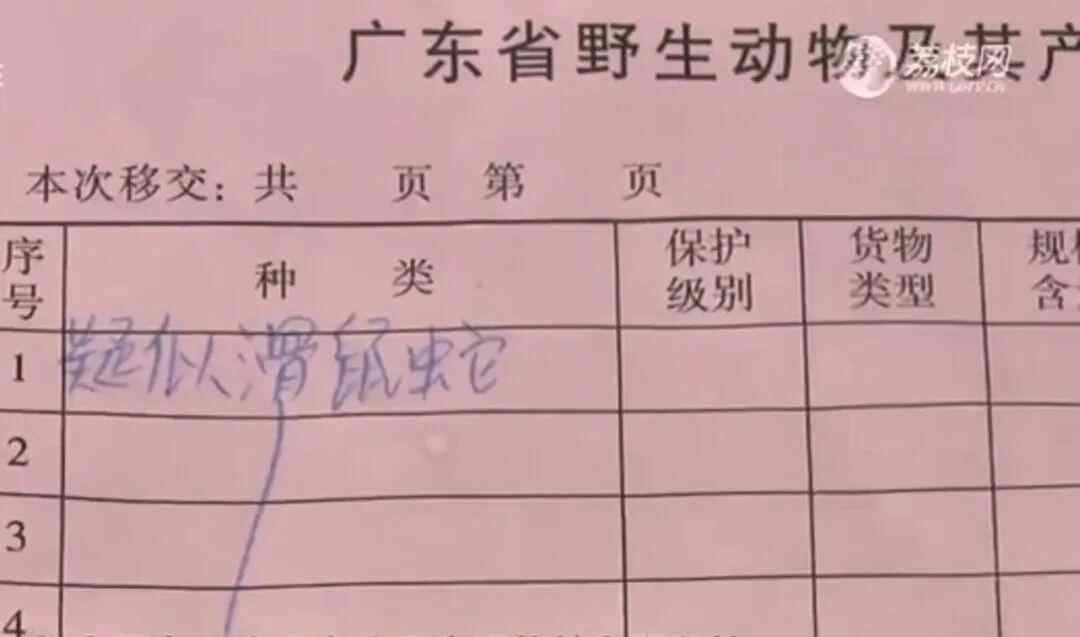 广东省野生动物及其产
荔枝网
本次移交：共 页 第 页
序号 种类 保护级别 货物类型 规
1 疑似滑鼠蛇
2
3
4